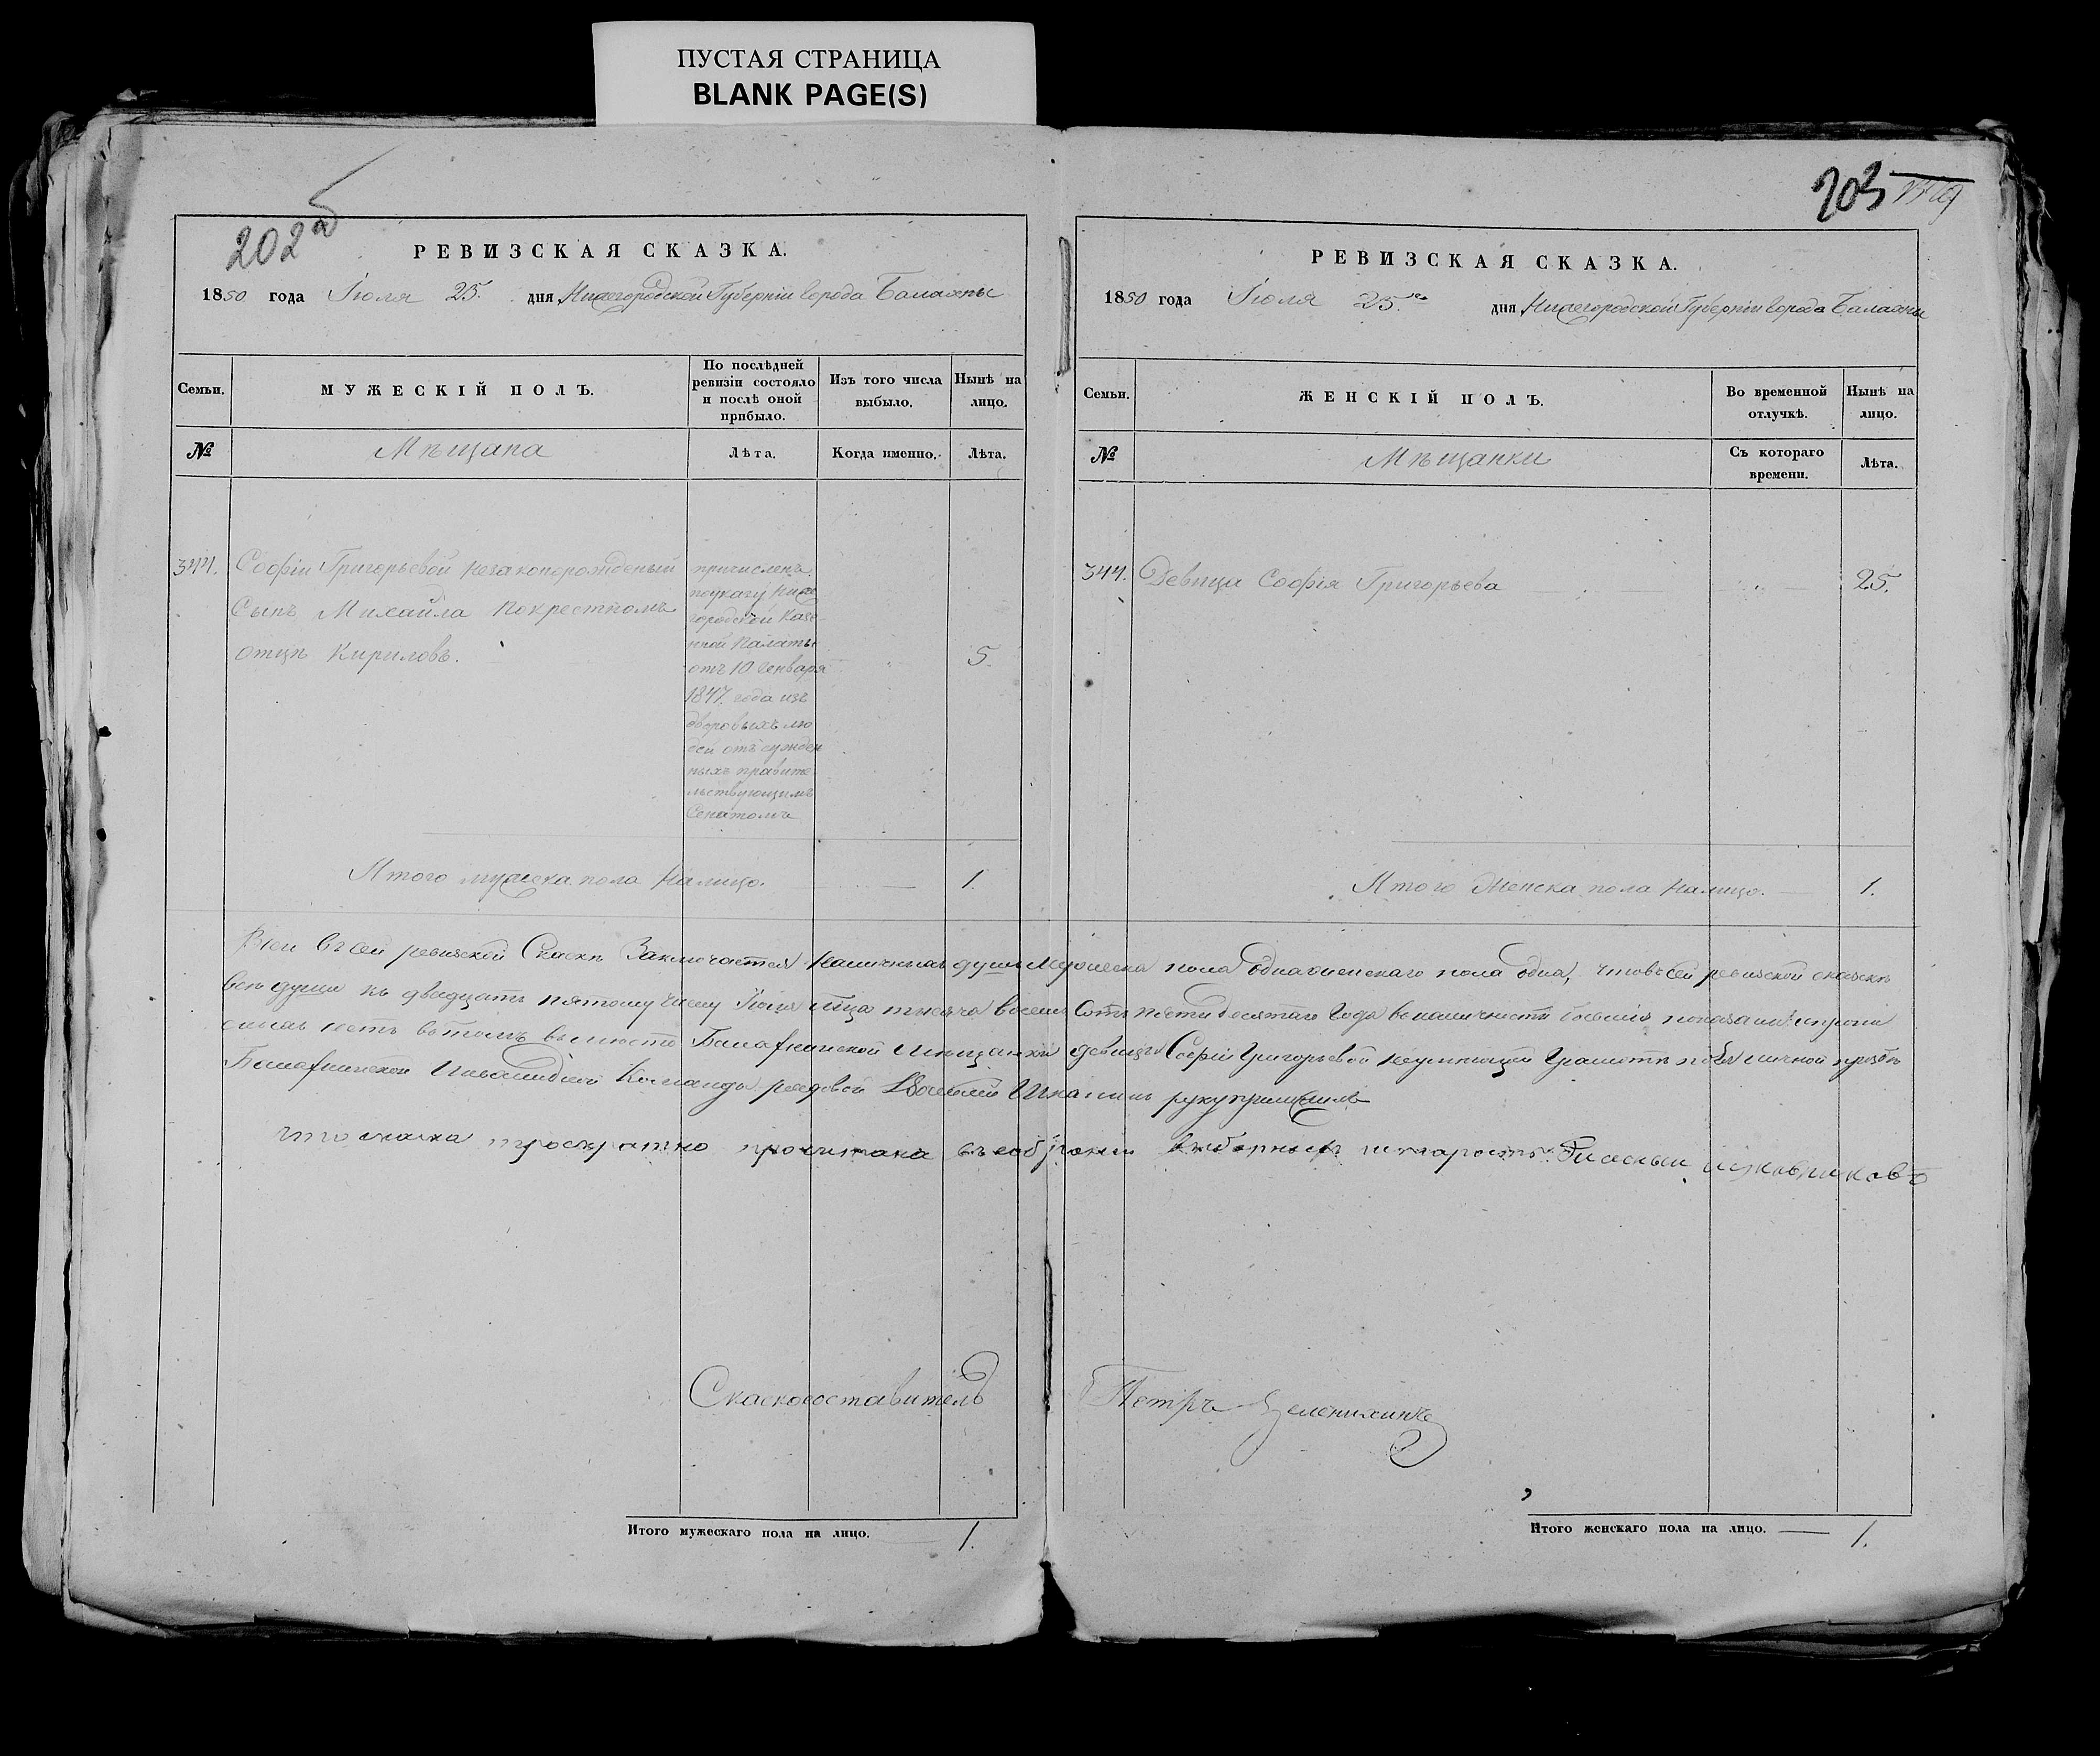 ПУСТАЯ СТРАНИЦА
BLANK PAGE(S)
202 об
РЕВИЗСКАЯ СКАЗКА.
1850 года Іюля 25. дня Нижегородской Губерніи города Балахны
Семьи. МУЖЕСКІЙ ПОЛЪ. По послѣдней ревизіи состояло и послѣ оной прибыло. Изъ того числа выбыло. Нынѣ на лицо.
№ Мѣщана Лѣта. Когда именно. Лѣта.
344. Софіи Григорьевой незаконорожденый
Сынъ Михайла покрестному
отцу Кириловъ. 5.
причисленъ
поуказу Ниже
городской Казе
нной палаты
отъ 10 Генваря
1847 года изъ
дворовыхъ лю
дей отъ сужден
ныхъ правите
льствующимъ
Сенатомъ
Итого мужеска пола налицо. 1.
203
РЕВИЗСКАЯ СКАЗКА.
1850 года Іюля 25. дня Нижегородской Губерніи города Балахны
Семьи. ЖЕНСКІЙ ПОЛЪ. Во временной отлучкѣ. Нынѣ на лицо.
№ Мѣщанки Съ котораго времени. Лѣта.
344. Девица Софія Григорьева 25.
Итого Женска пола налицо. 1.
въсей ревизской Скаскѣ Заключается наличныхъ душъ Мужеска пола одна женскаго пола одна, чтовъсей ревизской скаскѣ
всѣ души къ двадцать пятому числу Іюля мца тысяча восемь Сотъ пятидесятаго Года
нетъ вътомъ вместо Балахнинской Мещанки девицы Софіи Григорьевой неумеющей Грамотѣ поея личной прозбѣ
Балахнинской Инвалидной Команды рядовой руку приложилъ
что скаска троекратно прочитана
Скаскосоставитель Петръ Зеленихинъ
Итого мужескаго пола на лицо. 1.
Итого женскаго пола на лицо. 1.